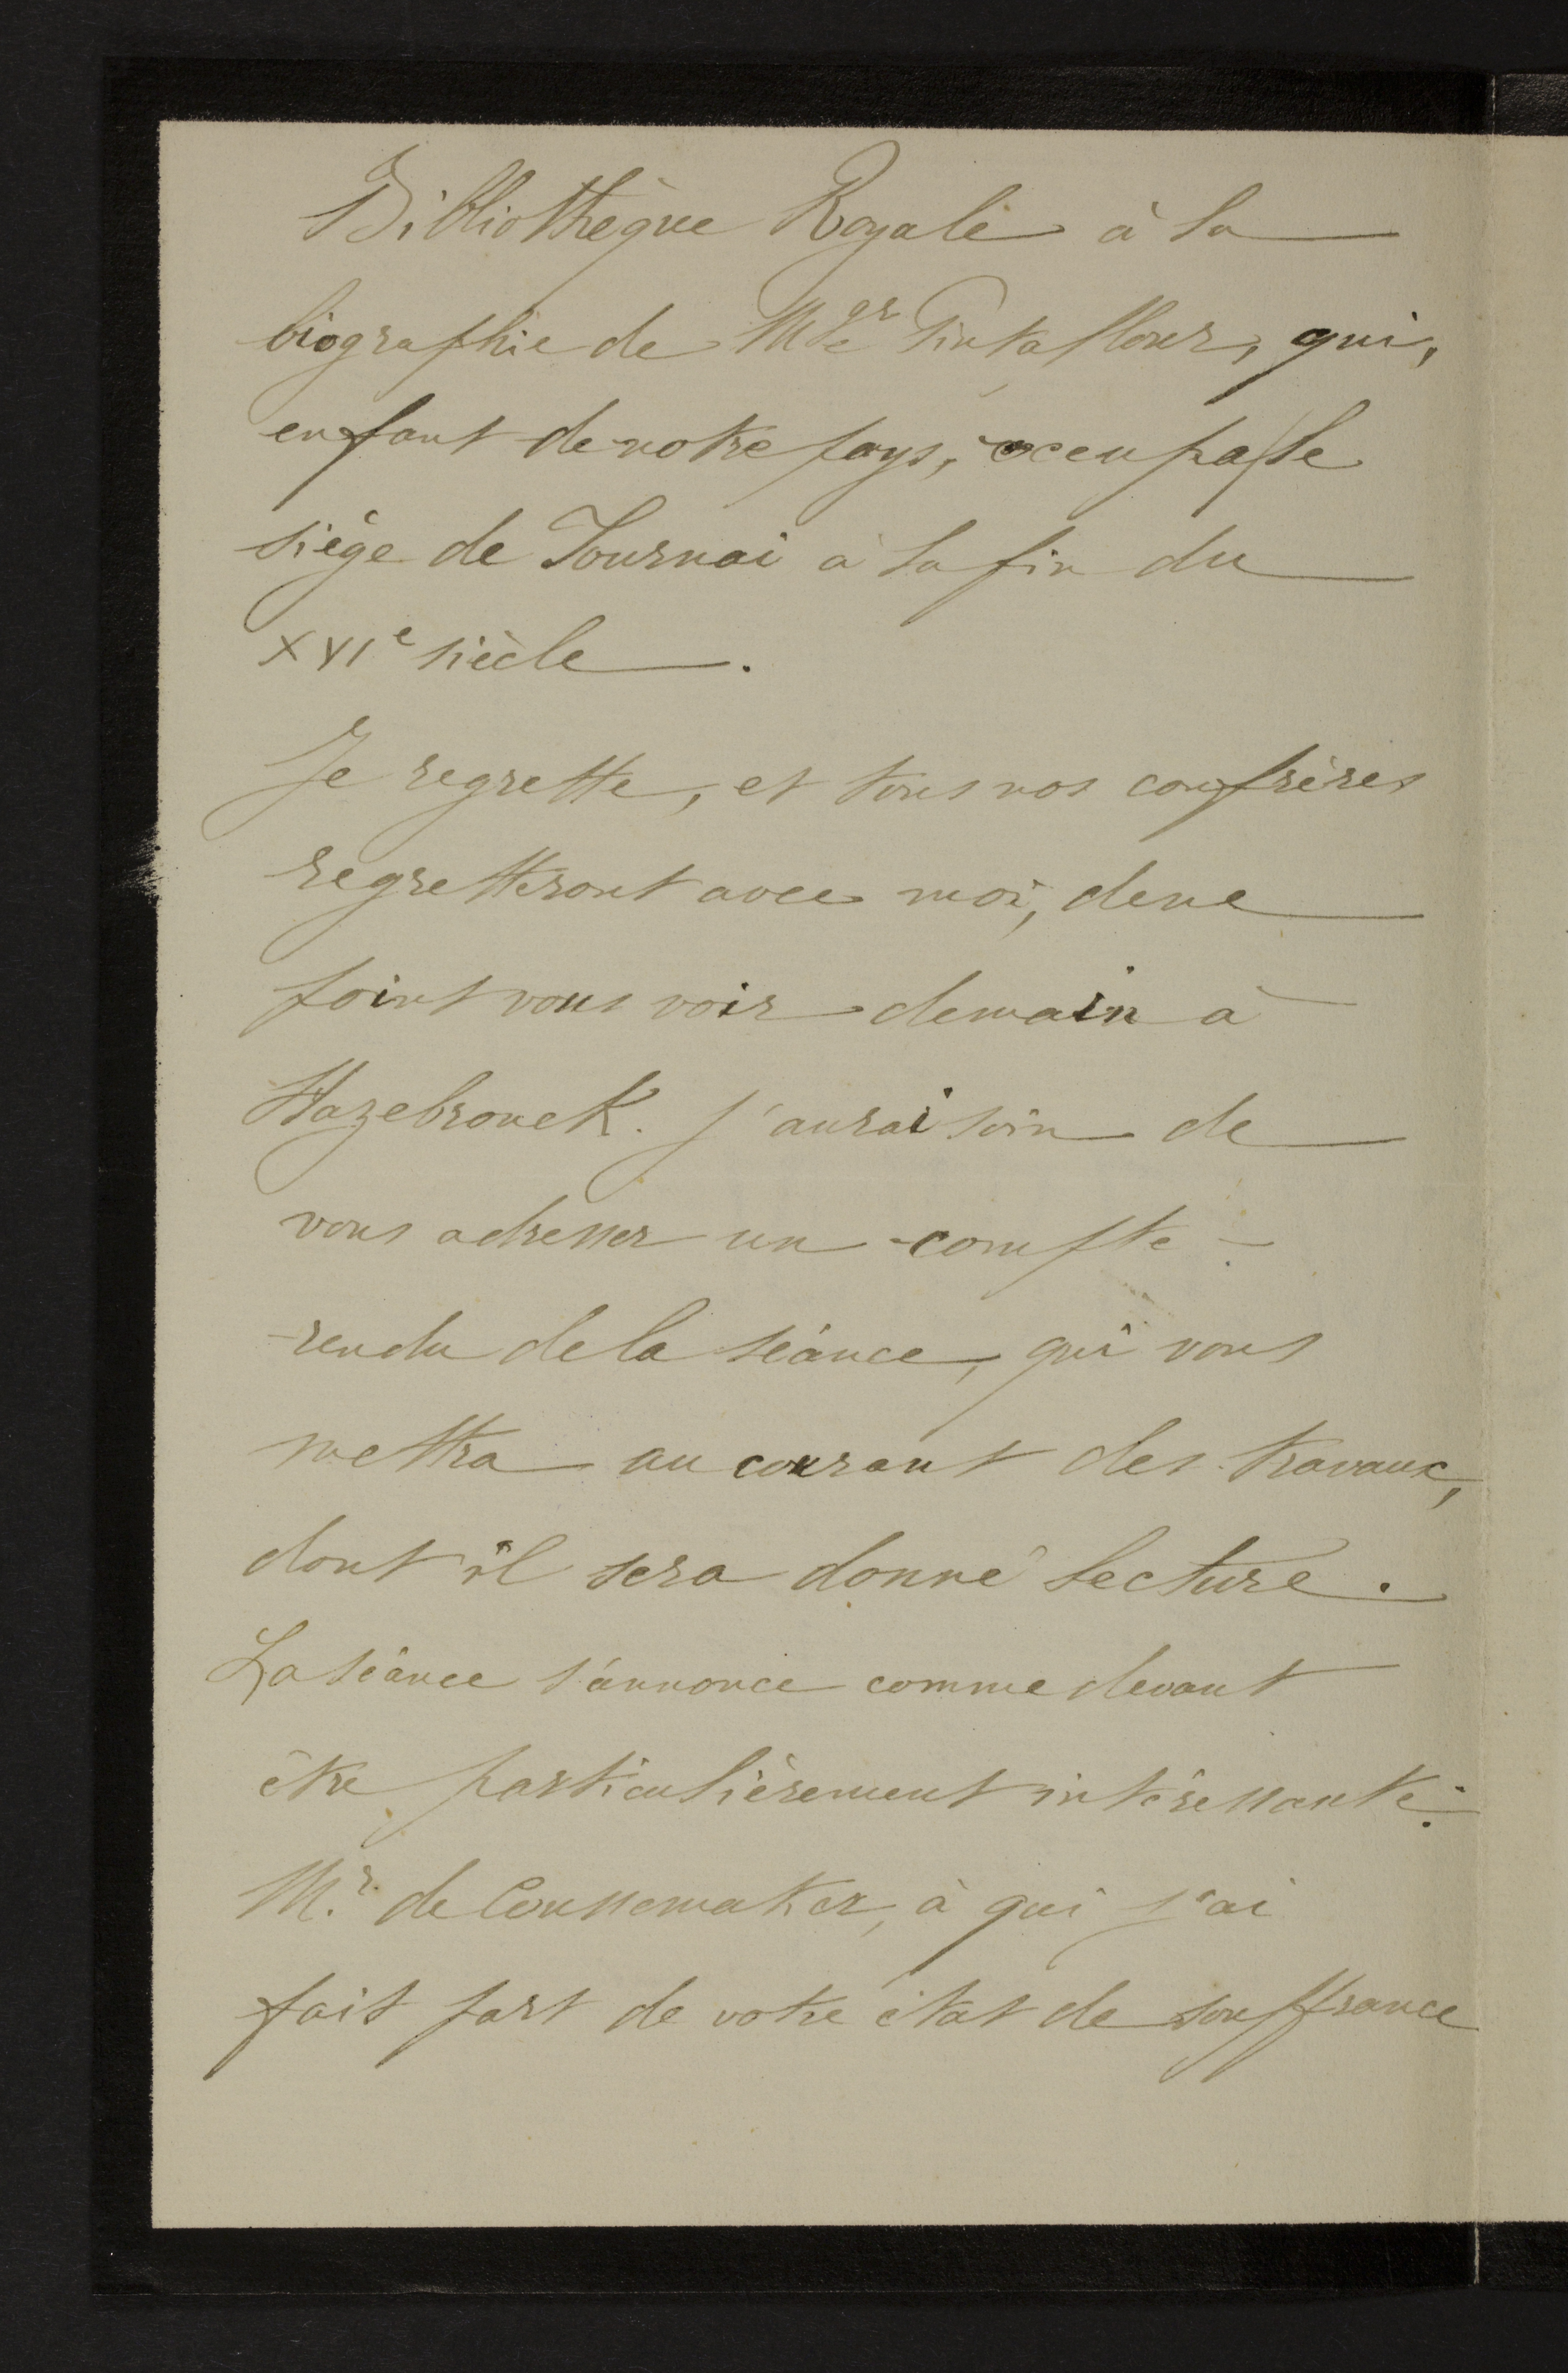 Bibliothèque Royale à la
biographie de Mgr Pintaflour, qui,
enfant de notre pays, occupa le
siège de Tournai à la fin du
XVIe siècle.
Je regrette, et tous nos confrères
regretteront avec moi, de ne
point vous voir demain à
Hazebrouck. J'aurai soin de
vous adresser un compte-
-rendu de la séance, qui vous
mettra au courant des travaux,
dont il sera donné lecture.
La séance s'annonce comme devant
être particulièrement intéressante.
Mr. de Coussemaker, à qui j'ai
fait part de votre état de souffrance